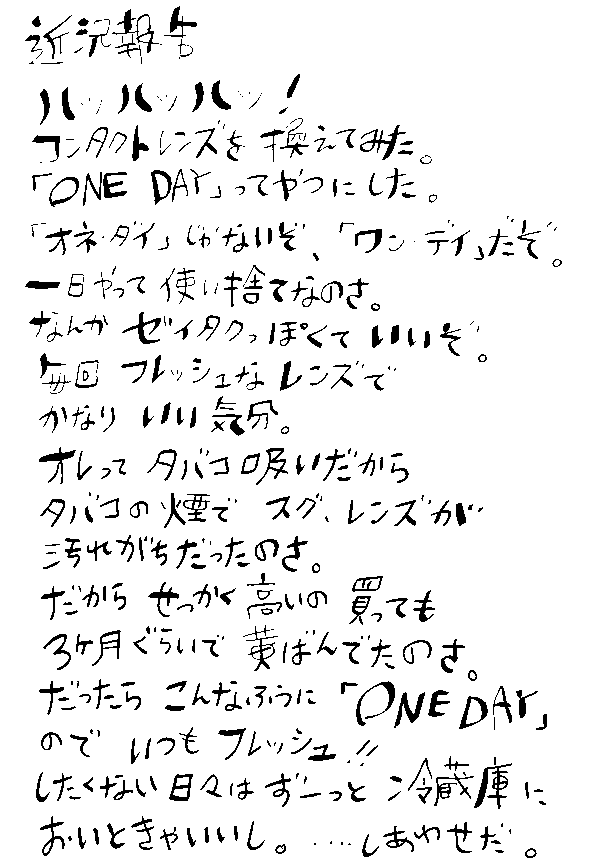 近況報告
ハッハッハッ!
コンタクトレンズを換えてみた。
「ONE DAY」ってやつにした。
「オネ・ダイ」じゃないぞ、「ワン・デイ」だぞ。
一日やって使い捨てなのさ。
なんかゼイタクっぽくていいぞ。
毎回フレッシュなレンズで
かなりいい気分。
オレってタバコ吸いだから
タバコの煙でスグ、レンズが
汚れがちだったのさ。
だからせっかく高いの買っても
3ヶ月ぐらいで黄ばんでたのさ。
だったらこんなふうに「ONE DAY」
のでいつもフレッシュ!!
したくない日々はずーっと冷蔵庫に
おいときゃいいし。‥‥しあわせだ。